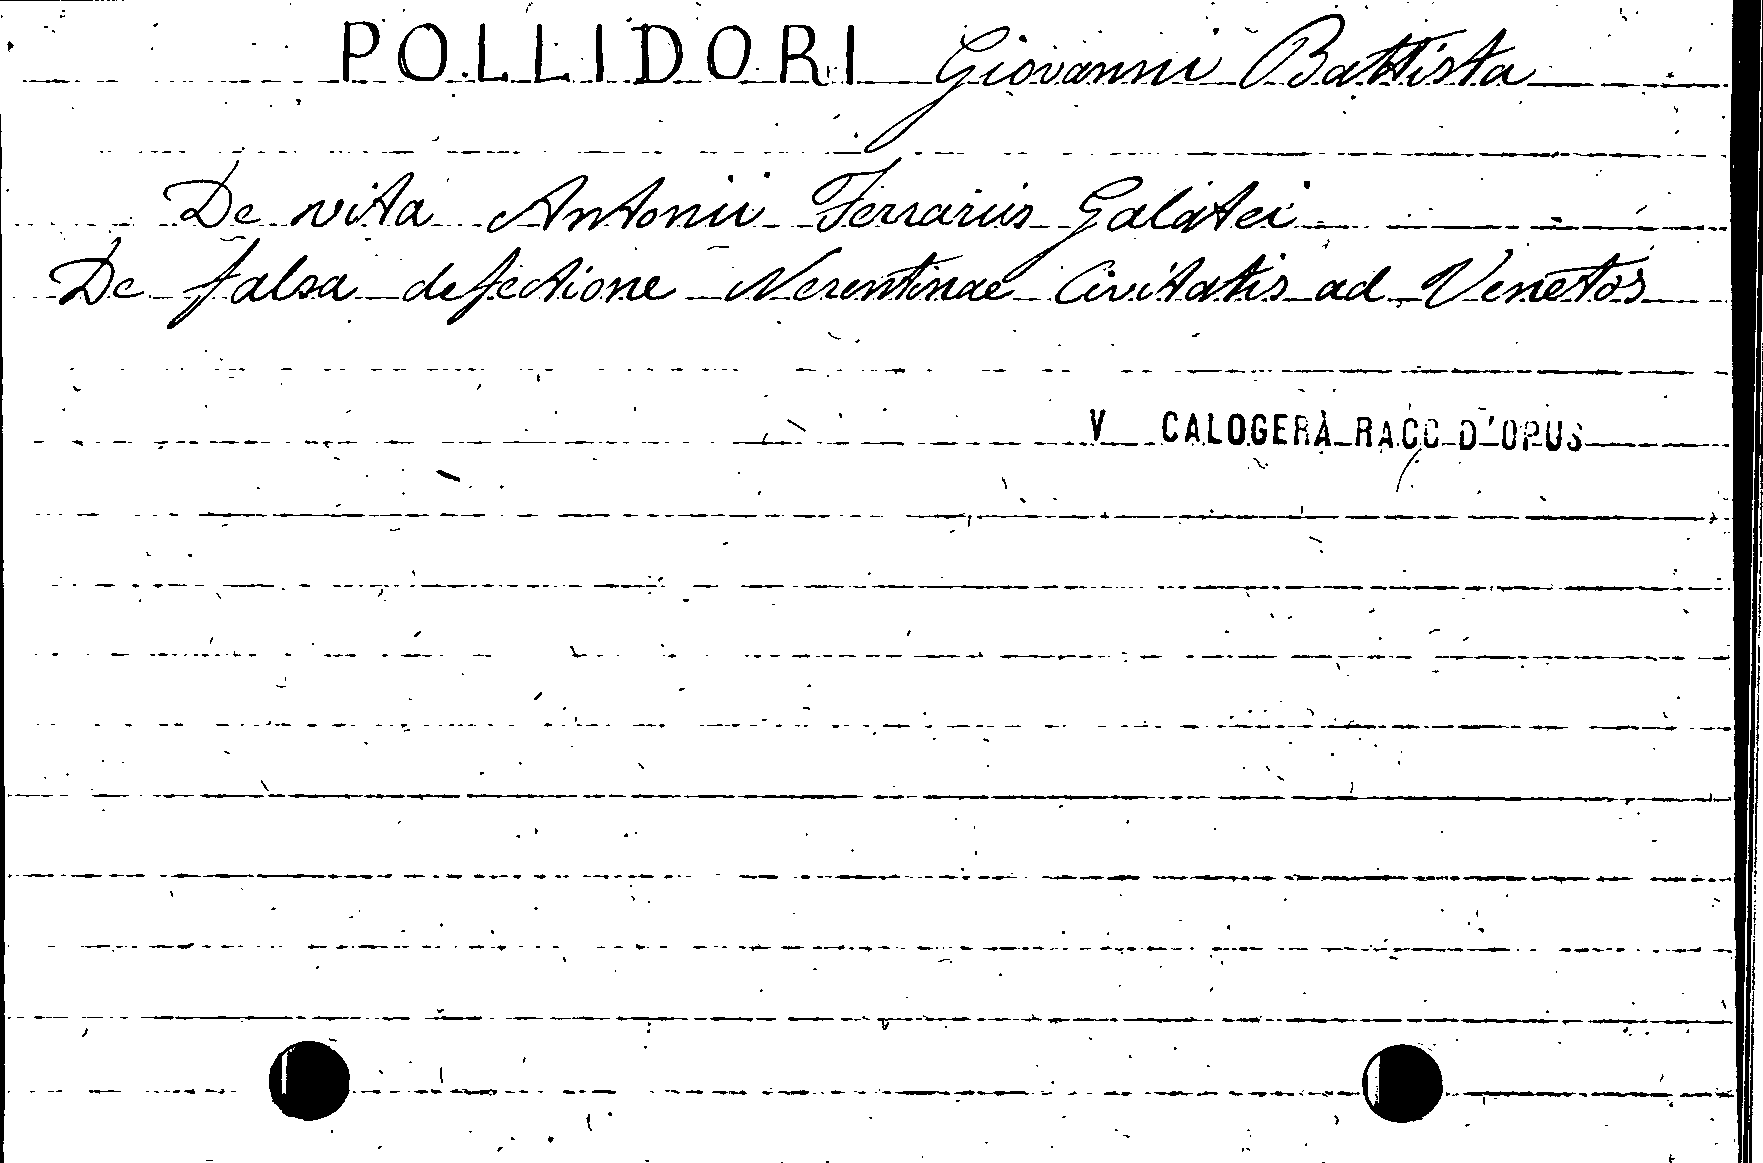 POLLIDORI Giovanni Battista
De vita Antonii Ferrariis Galatei
De falsa defectione Nerentinae Civitatis ad Venetos
V CALOGERÀ RACC D'OPUS